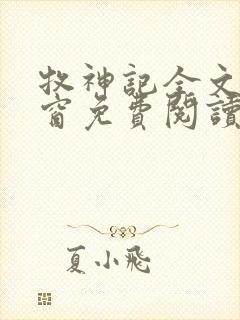 牧神記全文
窗免費閱讀
夏小飛